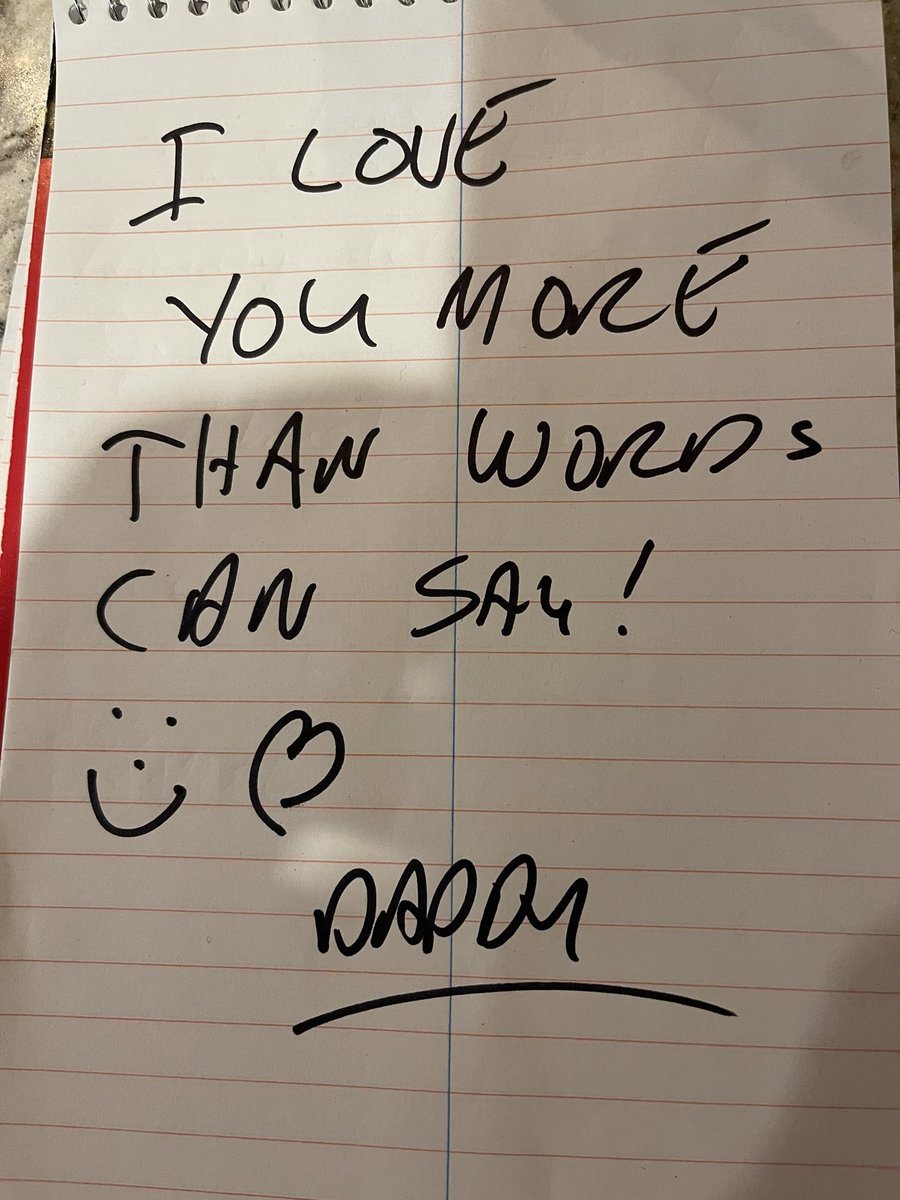 I LOVE
YOU MORE
THAN WORDS
CAN SAY!
DADDY